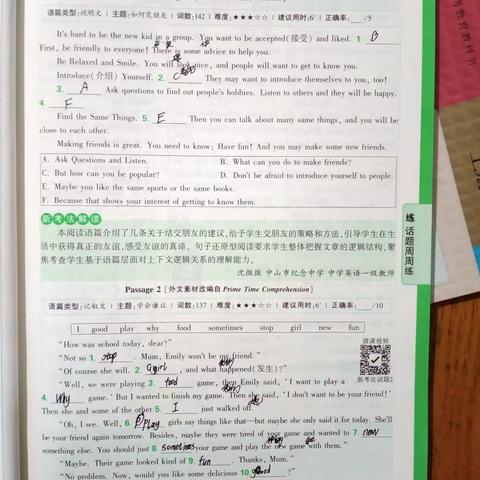 语篇类型:说明文 | 主题:如何交朋友 | 词数:142 | 难度:★★★☆☆ | 建议用时:6' | 正确率: /5
It's hard to be the new kid in a group. You want to be accepted(接受) and liked. 1. B
First, be friendly to everyone! There is some advice to help you.
Be Relaxed and Smile. You will look nice, and people will want to get to know you.
Introduce(介绍) Yourself. 2. C They may want to introduce themselves to you, too!
3. A Ask questions to find out people's hobbies. Listen to others and they will be happy.
4. F
Find the Same Things. 5. E Then you can talk about many same things, and you will be
close to each other.
Making friends is great. You need to know: Have fun! And you may make some new friends.
A. Ask Questions and Listen. B. What can you do to make friends?
C. But how can you be popular? D. Don't be afraid to introduce yourself to people.
E. Maybe you like the same sports or the same books.
F. Because that shows your interest of getting to know them.
新考法解读
本阅读语篇介绍了几条关于结交朋友的建议,给予学生交朋友的策略和方法,引导学生在生
活中获得真正的友谊,感受友谊的真谛。句子还原型阅读要求学生整体把握文章的逻辑结构,聚
焦考查学生基于语篇层面对上下文逻辑关系的理解能力。
沈微微 中山市纪念中学 中学英语一级教师
练 话题周周练
Passage 2 [外文素材改编自 Prime Time Comprehension]
语篇类型:记叙文 | 主题:学会谦让 | 词数:137 | 难度:★★★☆☆ | 建议用时:6' | 正确率: /10
I good play why food sometimes stop girl new fun
"How was school today, dear?"
微课视频
"Not so 1. stop . Mum, Emily won't be my friend."
"Of course she will. 2. girl , and what happened(发生)?"
新考法试题2
"Well, we were playing 3. food game, then Emily said, 'I want to play a
4. Why game.' But I wanted to finish my game. Then she said, 'I don't want to be your friend!'
Then she and some of the other 5. I just walked off."
"Oh, I see. Well, 6. play girls say things like that—but maybe she only said it for today. She'll
be your friend again tomorrow. Besides, maybe they were tired of your game and wanted to 7. new
something else. You should just 8. sometimes your game and play the new game with them."
"Maybe. Their game looked kind of 9. fun . Thanks, Mum."
"No problem. Now, would you like some delicious 10. good ?"